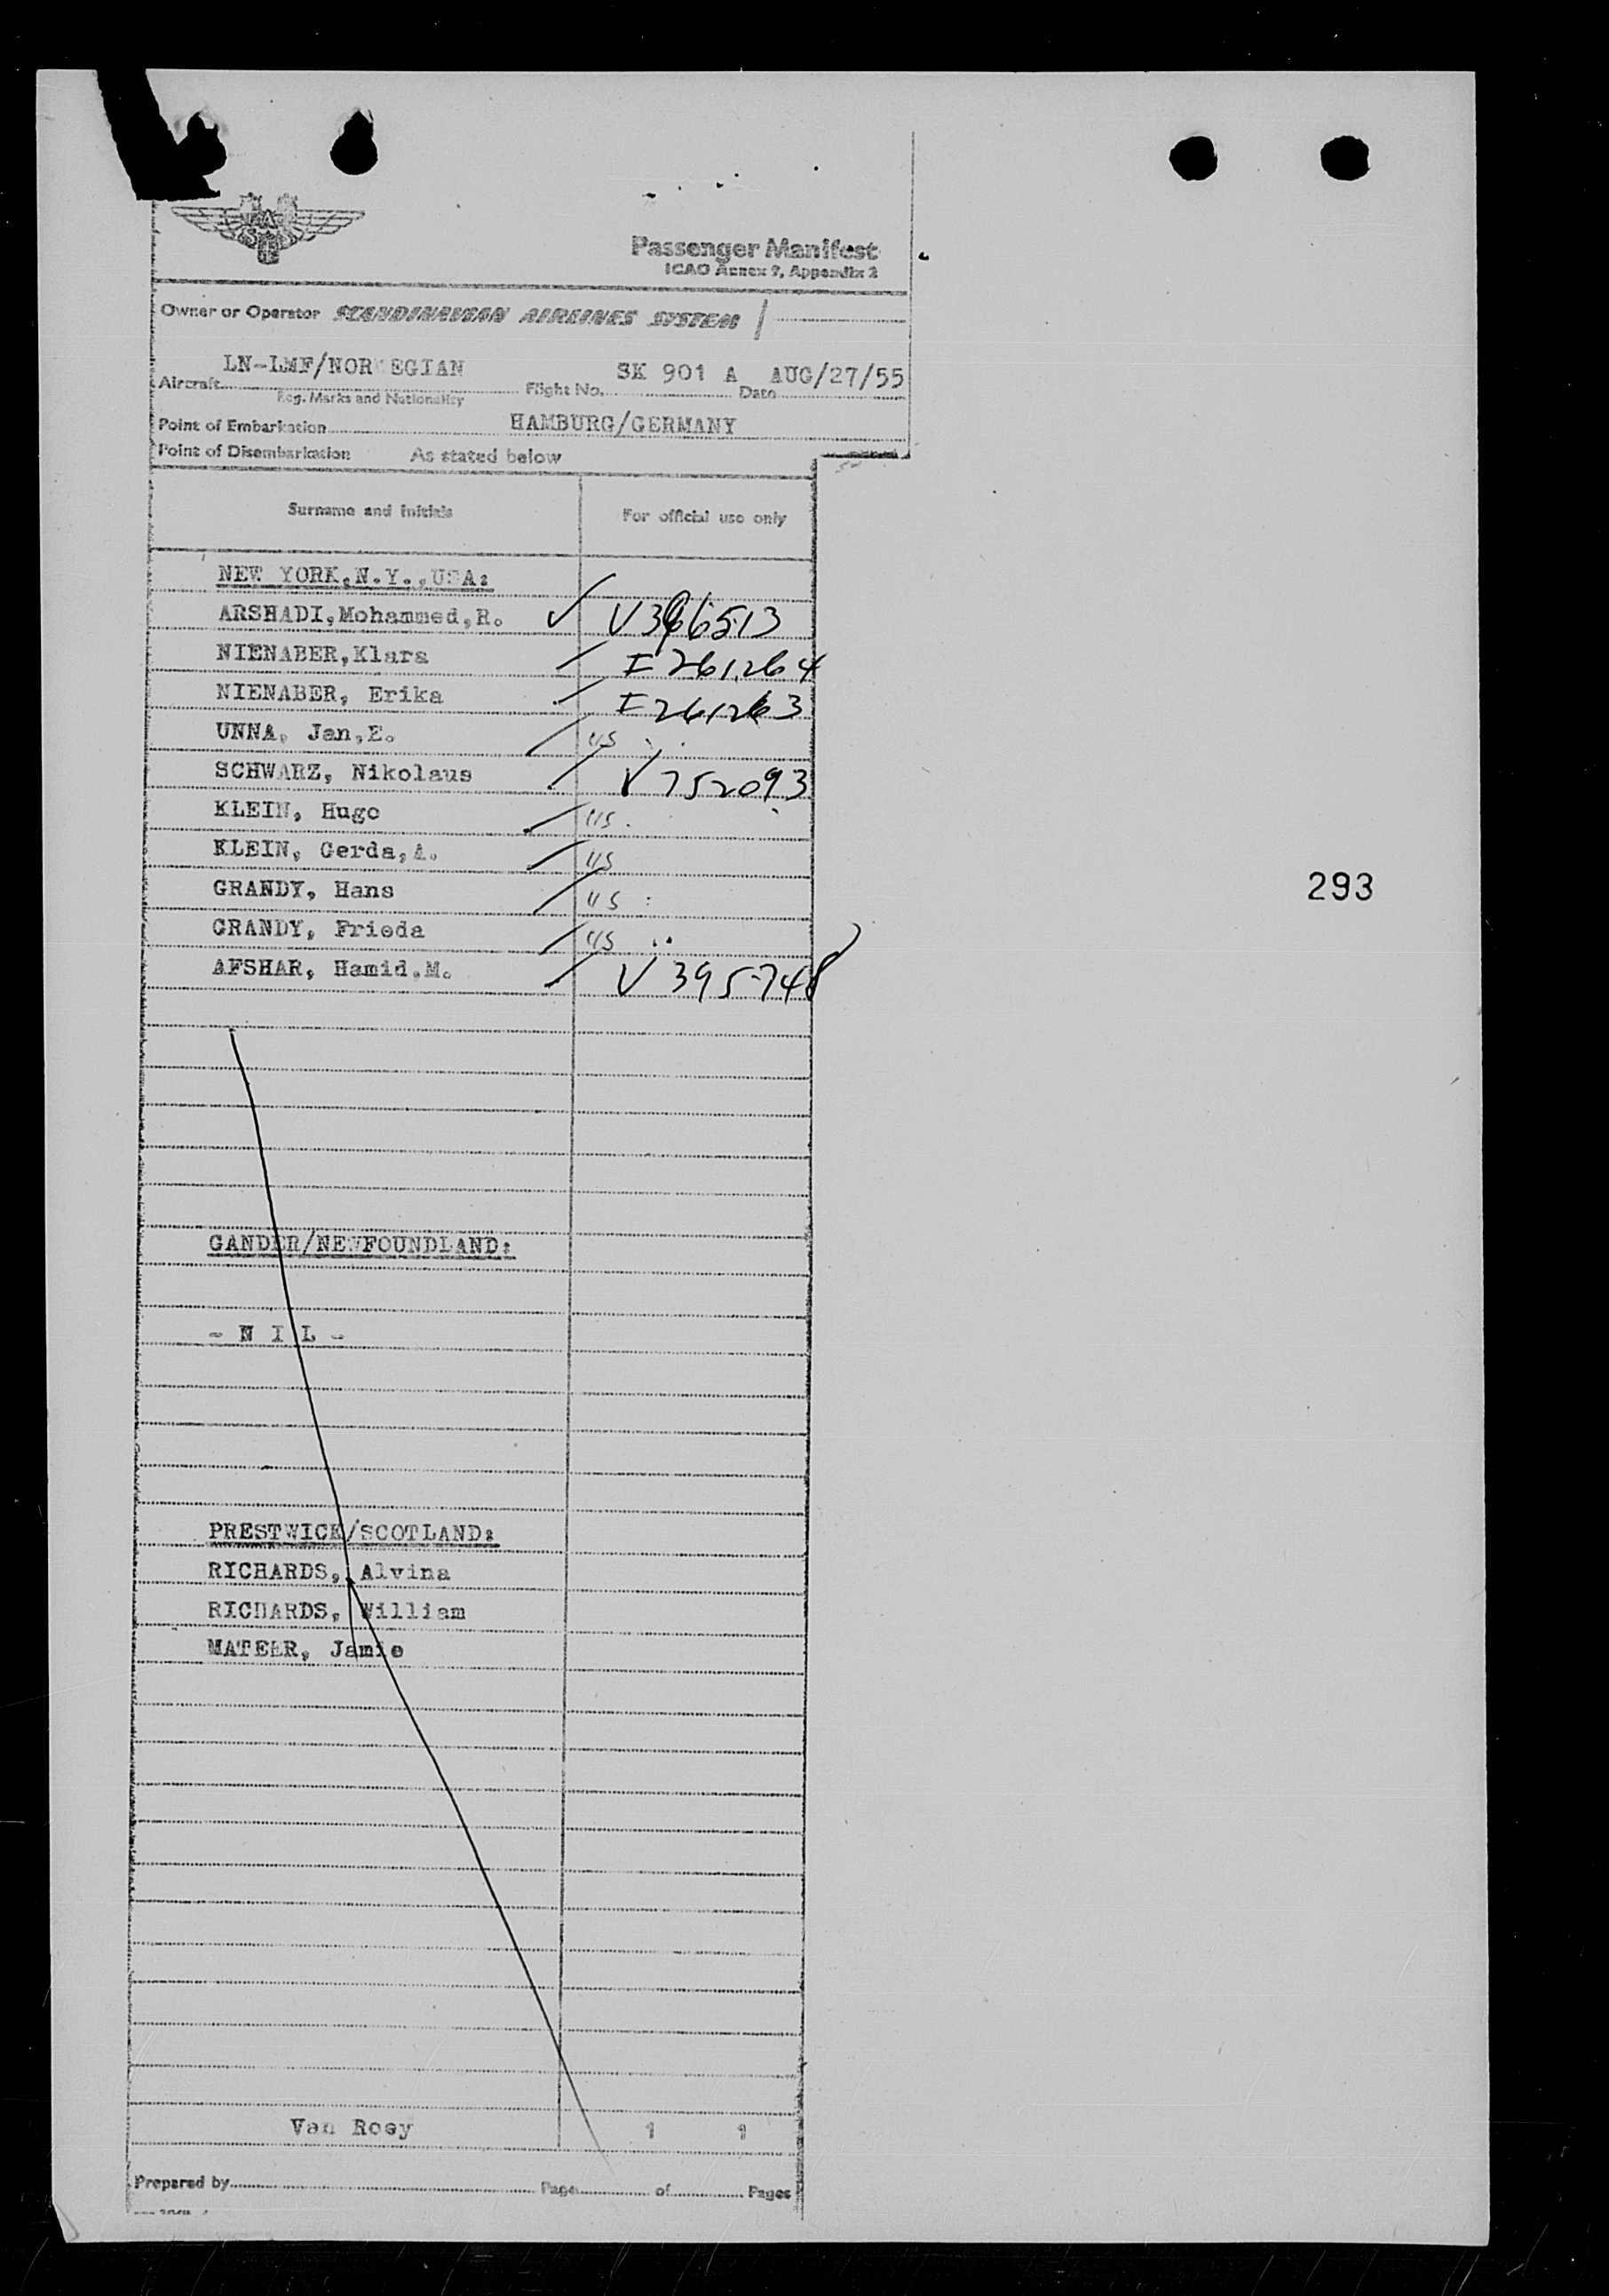 SAS
Passenger Manifest
ICAO Annex 9, Appendix 2
Owner or Operator SCANDINAVIAN AIRLINES SYSTEM
LN-LMF/NORWEGIAN SK 901 A AUG/27/55
Aircraft Flight No. Date
Reg. Marks and Nationality
Point of Embarkation HAMBURG/GERMANY
Point of Disembarkation As stated below
Surname and initials For official use only
NEW YORK,N.Y.,USA:
ARSHADI,Mohammed,R. ✓ V396513
NIENABER,Klara I 261264
NIENABER, Erika I 261263
UNNA, Jan,E. US
SCHWARZ, Nikolaus V 752093
KLEIN, Hugo US
KLEIN, Gerda,A. US
GRANDY, Hans US
GRANDY, Frieda US
293
AFSHAR, Hamid,M. V 395748
GANDER/NEWFOUNDLAND:
- N I L -
PRESTWICK/SCOTLAND:
RICHARDS, Alvina
RICHARDS, William
MATEER, Jamie
Van Rosy 1 1
Prepared by Page of Pages